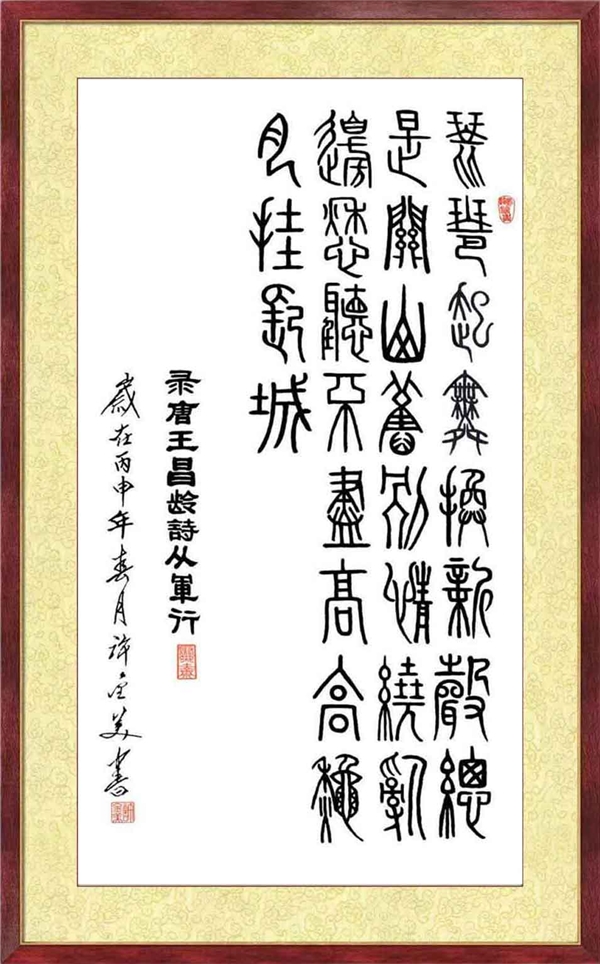 琵琶起舞換新聲總
是關山舊別情繞亂
邊愁聽不盡高高秋
月挂長城
录唐王昌龄詩从軍行
歲在丙申年春月許金美書